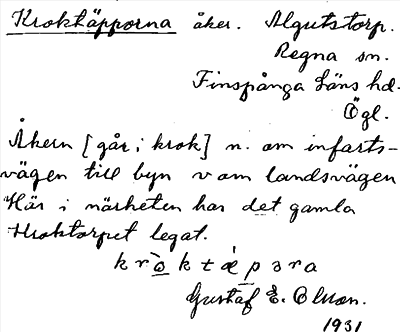 Kroktäpporna åker. Algutstorp.
Regna sn.
Finspånga läns hd.
Ögl.
Åkern [går i krok] n. om infarts-
vägen till byn v om landsvägen
Här i närheten har det gamla
Kroktorpet legat.
Gustaf E. Olson.
1931